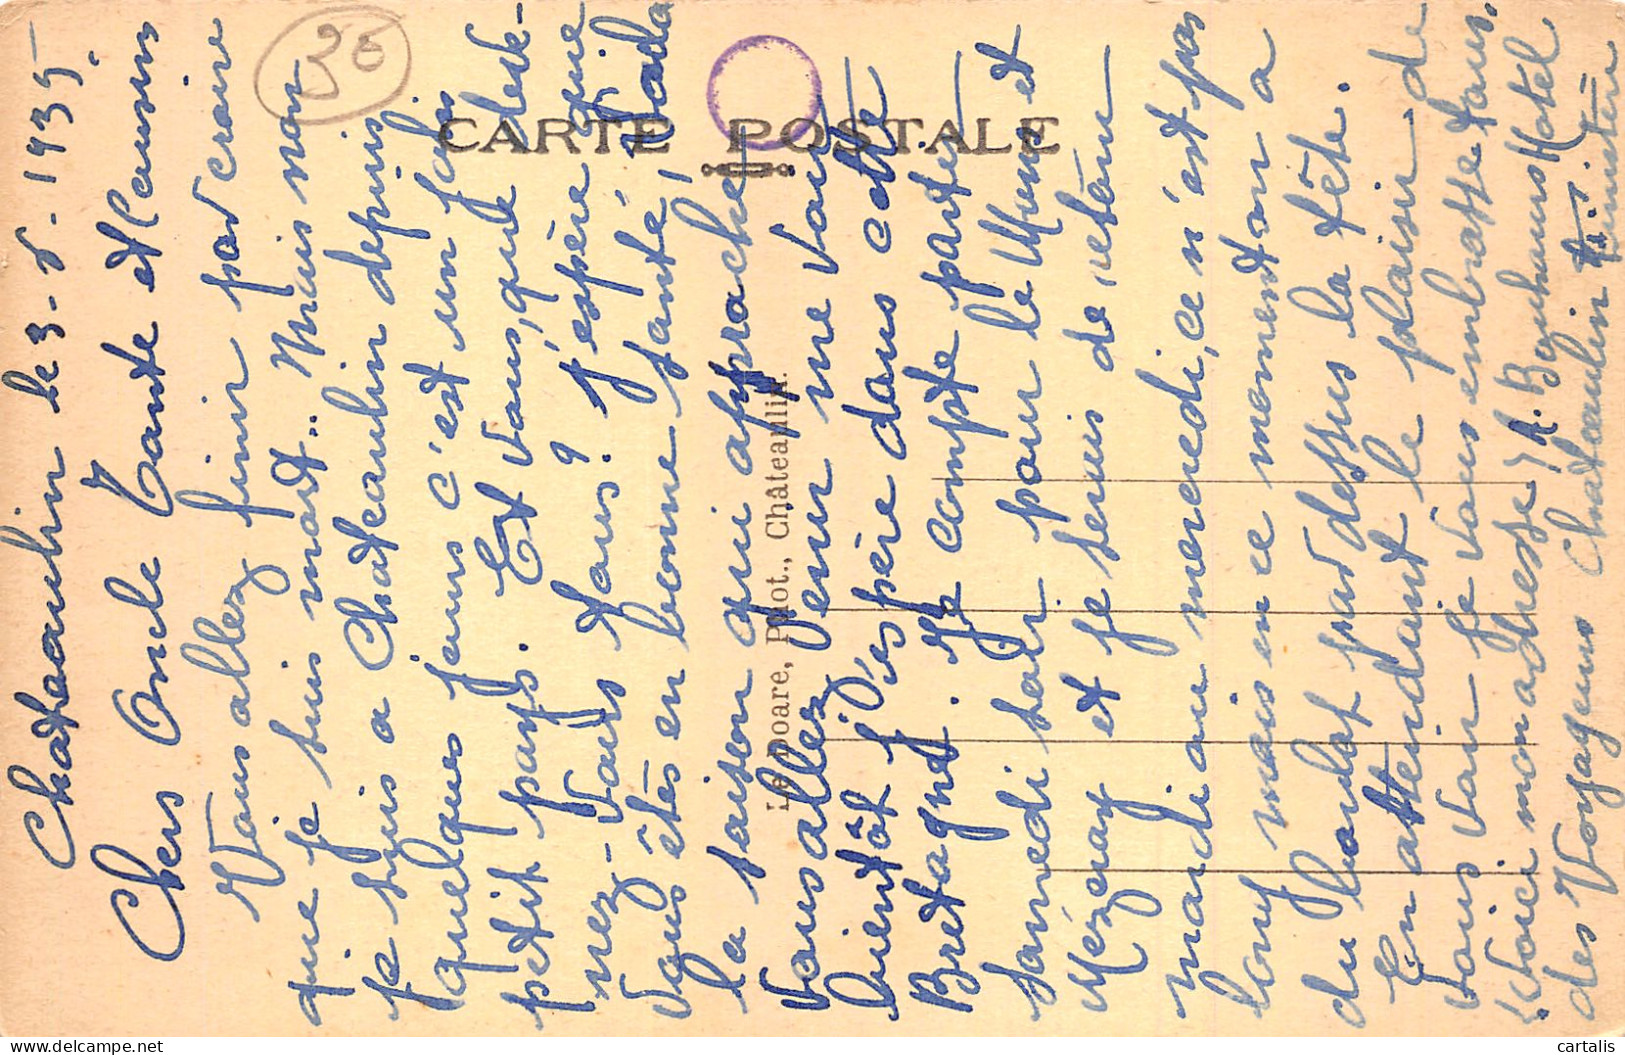 Chateaulin le 3-5-1935.
Chers Oncle Tante et Cousins
Vous allez finir par croire
que je suis mort.. Mais non
je suis a Chateaulin depuis
quelques jours c'est un joli
petit pays. Et vous, que deve-
nez-vous tous? J'espère que
vous êtes en bonne santé,
la saison qui approche
vous allez peur me voir
bientôt j'espère dans cette
Bretagne. Je compte partir
samedi soir pour le Mans et
Mézeray et je serais de retour
mardi ou mercredi, ce n'est pas
long mais en ce moment on a
du boulot par dessus la tête.
En attendant le plaisir de
vous voir je vous embrasse tous.
Voici mon adresse) A. Hotel
des Voyageurs Chateaulin Finistère
20
CARTE POSTALE
Le Doare, Phot., Châteaulin.
cartalis
delcampe.net